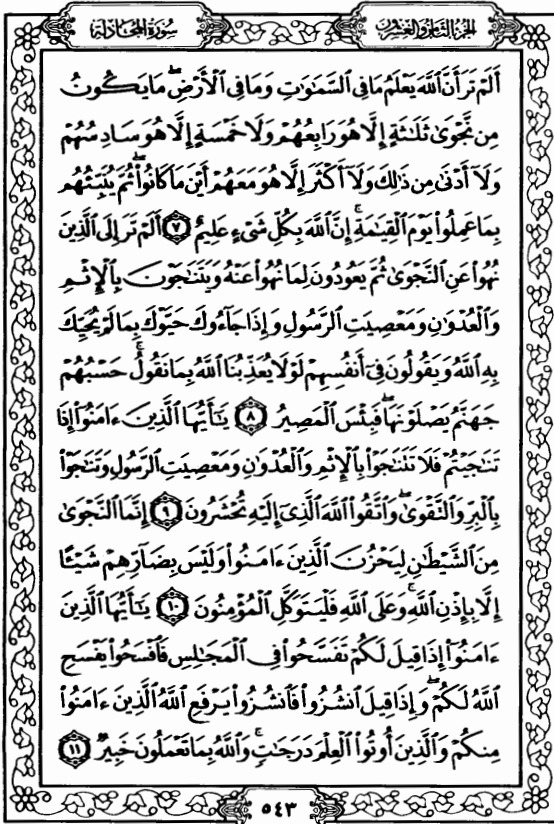 سُورَةُ المُجَادلة
الجُزْءُ الثَّامِنُ وَالعِشْرُونَ
أَلَمْ تَرَ أَنَّ ٱللَّهَ يَعْلَمُ مَا فِى ٱلسَّمَٰوَٰتِ وَمَا فِى ٱلْأَرْضِ ۖ مَا يَكُونُ
مِن نَّجْوَىٰ ثَلَٰثَةٍ إِلَّا هُوَ رَابِعُهُمْ وَلَا خَمْسَةٍ إِلَّا هُوَ سَادِسُهُمْ
وَلَآ أَدْنَىٰ مِن ذَٰلِكَ وَلَآ أَكْثَرَ إِلَّا هُوَ مَعَهُمْ أَيْنَ مَا كَانُوا۟ ۖ ثُمَّ يُنَبِّئُهُم
بِمَا عَمِلُوا۟ يَوْمَ ٱلْقِيَٰمَةِ ۚ إِنَّ ٱللَّهَ بِكُلِّ شَىْءٍ عَلِيمٌ ٧ أَلَمْ تَرَ إِلَى ٱلَّذِينَ
نُهُوا۟ عَنِ ٱلنَّجْوَىٰ ثُمَّ يَعُودُونَ لِمَا نُهُوا۟ عَنْهُ وَيَتَنَٰجَوْنَ بِٱلْإِثْمِ
وَٱلْعُدْوَٰنِ وَمَعْصِيَتِ ٱلرَّسُولِ وَإِذَا جَآءُوكَ حَيَّوْكَ بِمَا لَمْ يُحَيِّكَ
بِهِ ٱللَّهُ وَيَقُولُونَ فِىٓ أَنفُسِهِمْ لَوْلَا يُعَذِّبُنَا ٱللَّهُ بِمَا نَقُولُ ۚ حَسْبُهُمْ
جَهَنَّمُ يَصْلَوْنَهَا ۖ فَبِئْسَ ٱلْمَصِيرُ ٨ يَٰٓأَيُّهَا ٱلَّذِينَ ءَامَنُوٓا۟ إِذَا
تَنَٰجَيْتُمْ فَلَا تَتَنَٰجَوْا۟ بِٱلْإِثْمِ وَٱلْعُدْوَٰنِ وَمَعْصِيَتِ ٱلرَّسُولِ وَتَنَٰجَوْا۟
بِٱلْبِرِّ وَٱلتَّقْوَىٰ ۖ وَٱتَّقُوا۟ ٱللَّهَ ٱلَّذِىٓ إِلَيْهِ تُحْشَرُونَ ٩ إِنَّمَا ٱلنَّجْوَىٰ
مِنَ ٱلشَّيْطَٰنِ لِيَحْزُنَ ٱلَّذِينَ ءَامَنُوا۟ وَلَيْسَ بِضَآرِّهِمْ شَيْـًٔا
إِلَّا بِإِذْنِ ٱللَّهِ ۚ وَعَلَى ٱللَّهِ فَلْيَتَوَكَّلِ ٱلْمُؤْمِنُونَ ١٠ يَٰٓأَيُّهَا ٱلَّذِينَ
ءَامَنُوٓا۟ إِذَا قِيلَ لَكُمْ تَفَسَّحُوا۟ فِى ٱلْمَجَٰلِسِ فَٱفْسَحُوا۟ يَفْسَحِ
ٱللَّهُ لَكُمْ ۖ وَإِذَا قِيلَ ٱنشُزُوا۟ فَٱنشُزُوا۟ يَرْفَعِ ٱللَّهُ ٱلَّذِينَ ءَامَنُوا۟
مِنكُمْ وَٱلَّذِينَ أُوتُوا۟ ٱلْعِلْمَ دَرَجَٰتٍ ۚ وَٱللَّهُ بِمَا تَعْمَلُونَ خَبِيرٌ ١١
٥٤٣